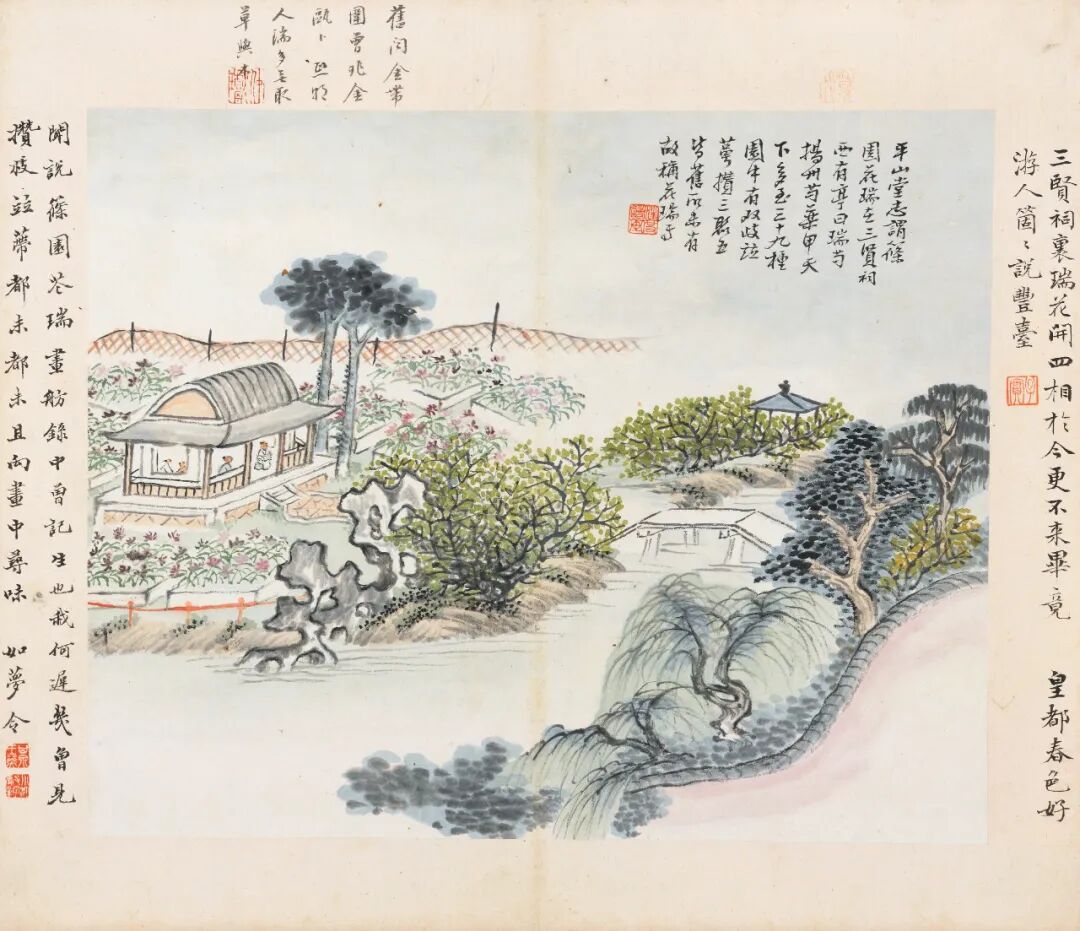 三賢祠裏瑞花開四相於今更不來畢竟 皇都春色好
游人箇〻說豐臺
平山堂志謂篠
園花瑞在三賢祠
西有亭曰瑞芍
揚州芍藥甲天
下多至三十九種
園中有双歧竝
萼攢三聚五
皆舊所未有
故稱花瑞焉
舊聞金帶
圍曾兆金
甌卜熙朝
人瑞多無取
草與木
聞說篠園花瑞畫舫錄中曾記生也我何遲幾曾見
攢枝竝蒂都未都未且向畫中尋味 如夢令